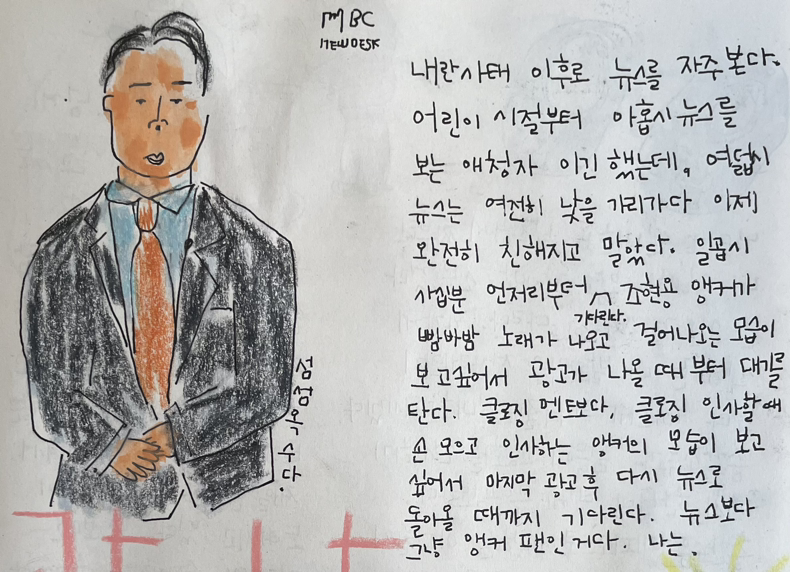 MBC
NEWDESK
내란사태 이후로 뉴스를 자주 본다.
어린이 시절부터 아홉시 뉴스를
보는 애청자 이긴 했는데, 여덟시
뉴스는 여전히 낯을 가리가다 이제
완전히 친해지고 말았다. 일곱시
사십분 언저리부터 기다린다. 조현용 앵커가
빰바밤 노래가 나오고 걸어나오는 모습이
보고싶어서 광고가 나올 때 부터 대기를
탄다. 클로징 멘트보다, 클로징 인사할 때
손 모으고 인사하는 앵커의 모습이 보고
싶어서 마지막 광고 후 다시 뉴스로
돌아올 때까지 기다린다. 뉴스보다
그냥 앵커 팬인 거다. 나는.